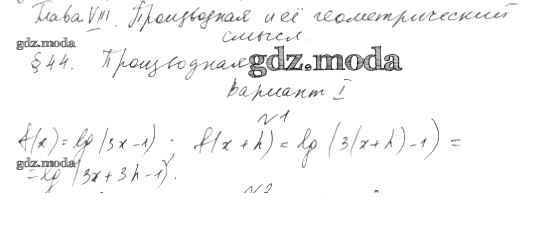 Глава VIII. Производная и её геометрический
смысл.
gdz.moda
§ 44. Производная
gdz.moda
Вариант I
№1
f(x) = lg (3x-1); f(x+h) = lg (3(x+h)-1) =
gdz.moda
= lg (3x+3h-1).
№2